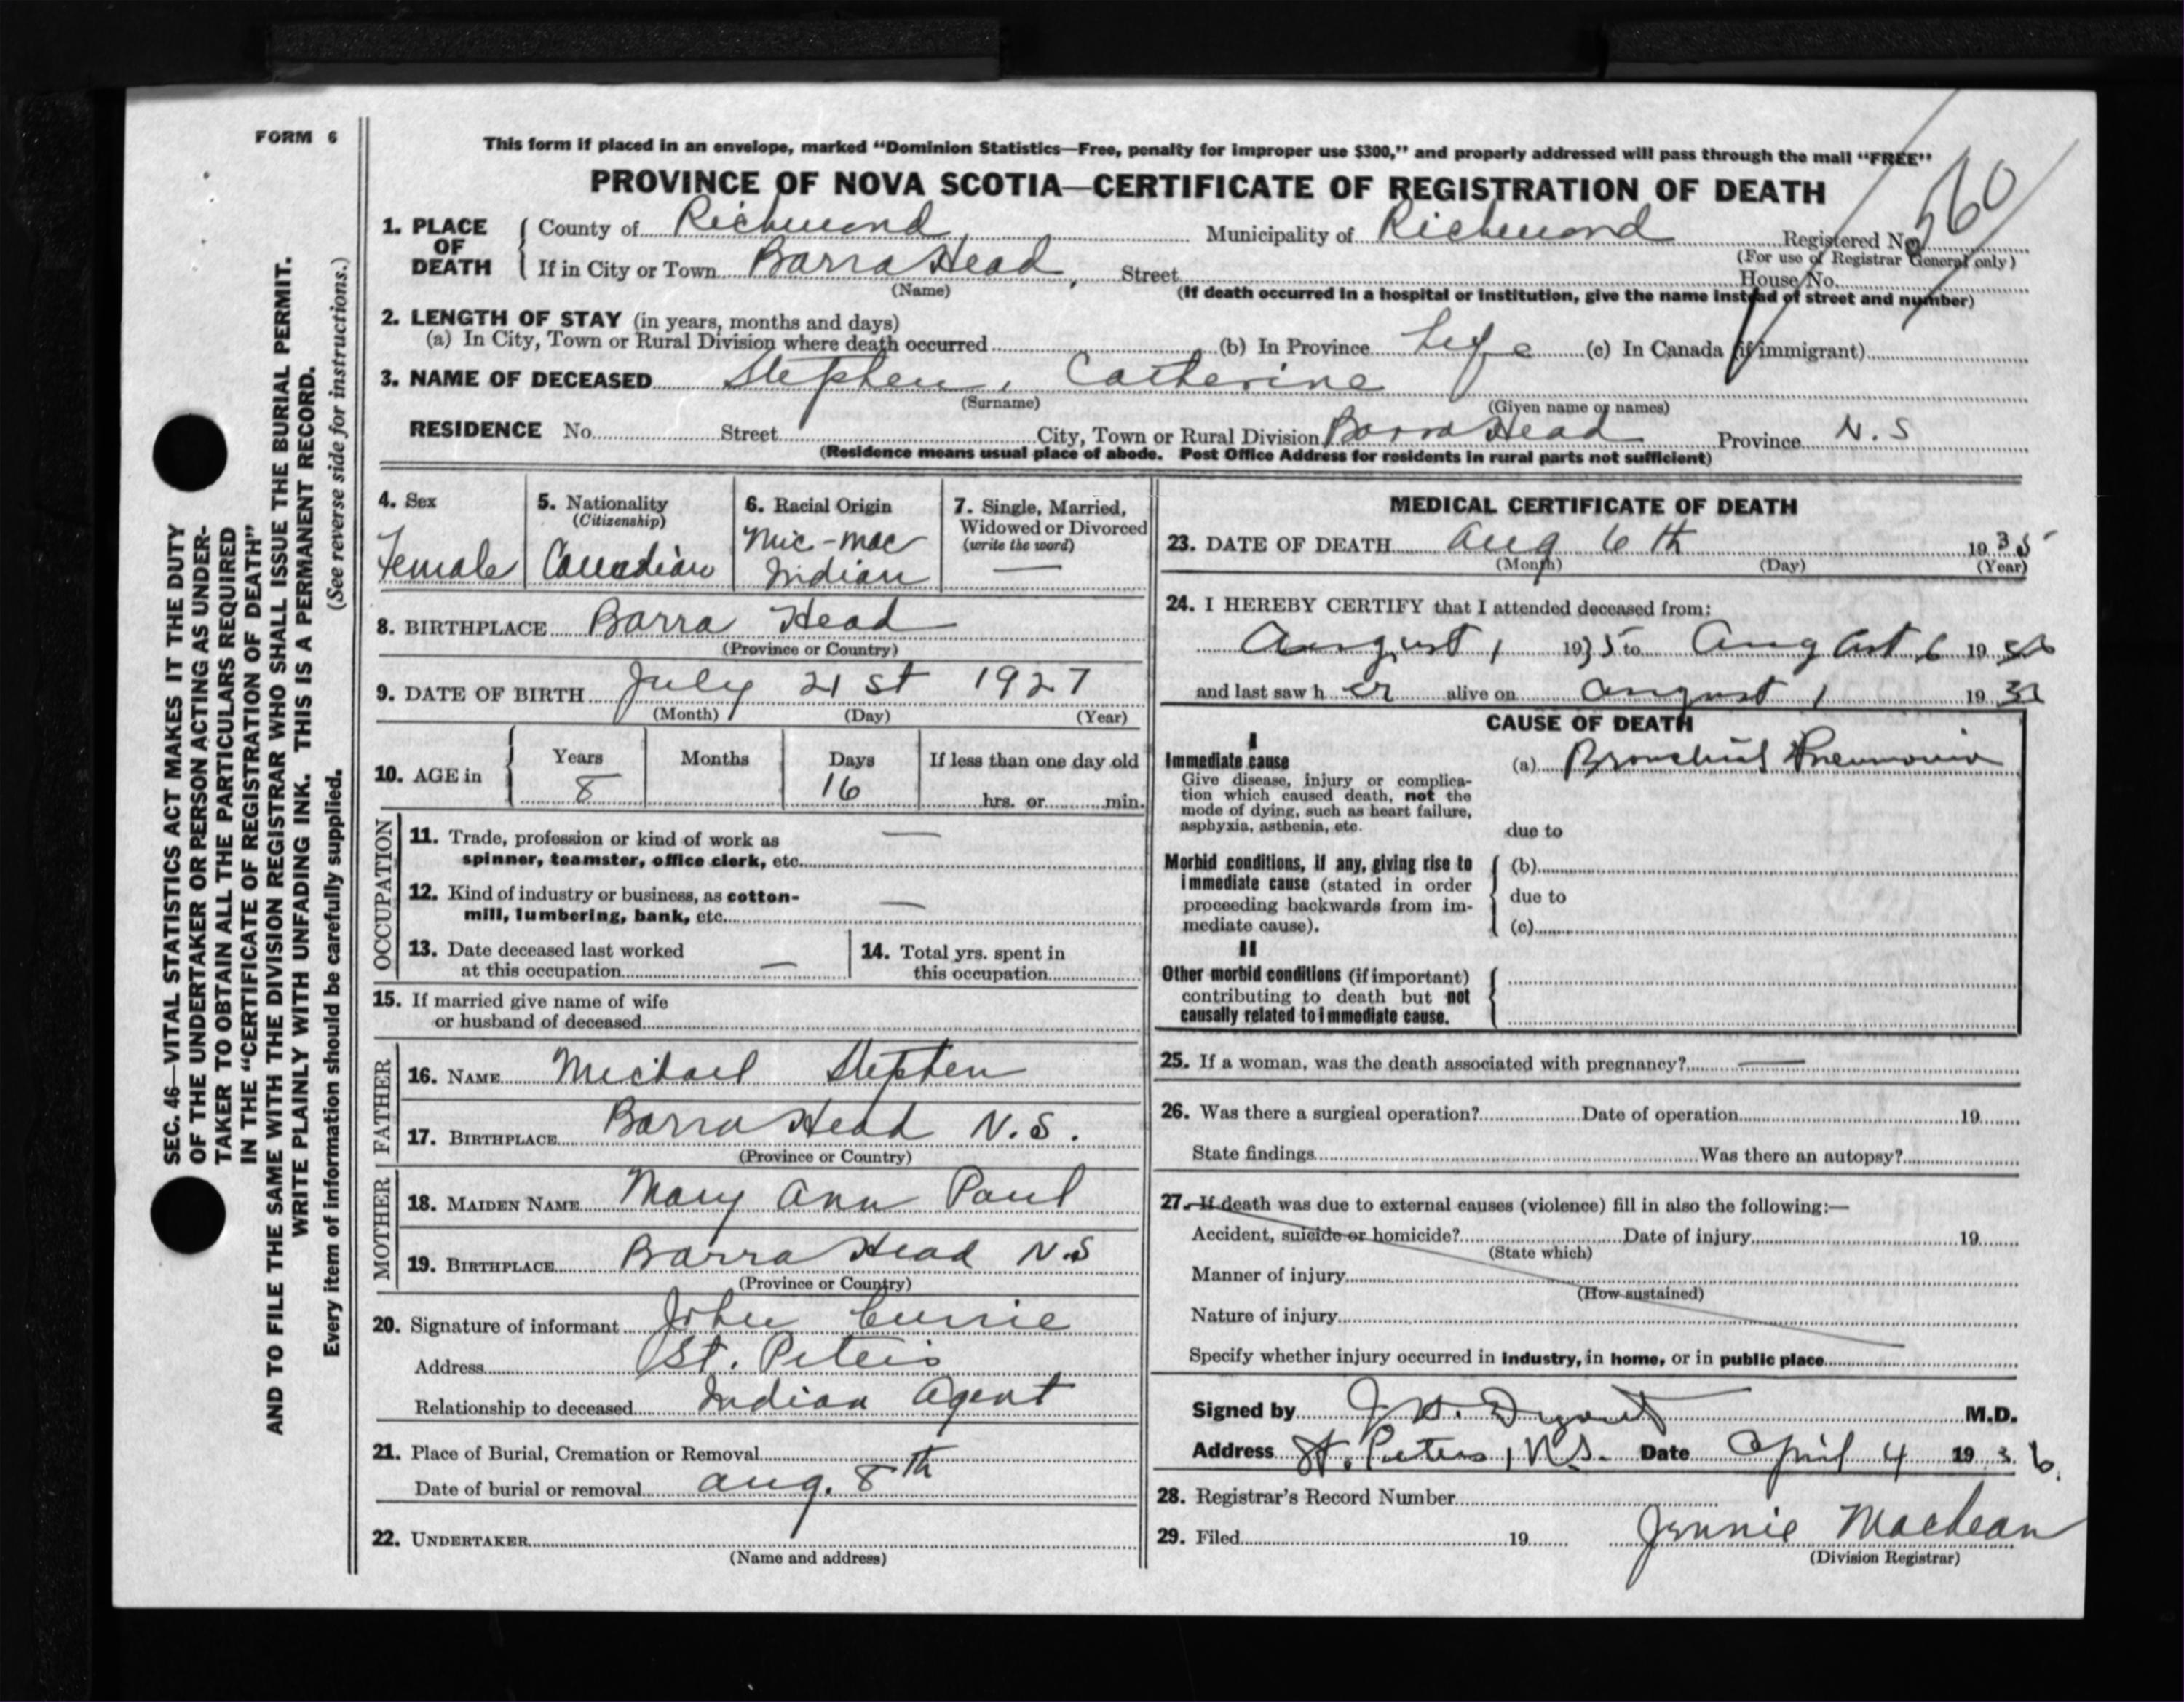 FORM 6
This form if placed in an envelope, marked "Dominion Statistics—Free, penalty for improper use $300," and properly addressed will pass through the mail "FREE"
PROVINCE OF NOVA SCOTIA—CERTIFICATE OF REGISTRATION OF DEATH
1. PLACE OF DEATH
County of Richmond, Municipality of Richmond Registered No. 560
(For use of Registrar General only)
If in City or Town Barra Head, Street House No.
(Name) (If death occurred in a hospital or institution, give the name instead of street and number)
2. LENGTH OF STAY (in years, months and days)
(a) In City, Town or Rural Division where death occurred (b) In Province Life (c) In Canada (if immigrant)
3. NAME OF DECEASED Stephen, Catherine
(Surname) (Given name or names)
RESIDENCE No. Street City, Town or Rural Division Barra Head Province N.S
(Residence means usual place of abode. Post Office Address for residents in rural parts not sufficient)
4. Sex
Female
5. Nationality
(Citizenship)
Canadian
6. Racial Origin
Mic-mac
Indian
7. Single, Married,
Widowed or Divorced
(write the word)
—
8. BIRTHPLACE Barra Head
(Province or Country)
9. DATE OF BIRTH July 21st 1927
(Month) (Day) (Year)
10. AGE in
Years Months Days If less than one day old
8 16 hrs. or min.
OCCUPATION
11. Trade, profession or kind of work as —
spinner, teamster, office clerk, etc.
12. Kind of industry or business, as cotton-
mill, lumbering, bank, etc. —
13. Date deceased last worked
at this occupation —
14. Total yrs. spent in
this occupation
15. If married give name of wife
or husband of deceased
FATHER
16. NAME Michael Stephen
17. BIRTHPLACE Barra Head N.S.
(Province or Country)
MOTHER
18. MAIDEN NAME Mary Ann Paul
19. BIRTHPLACE Barra Head N.S
(Province or Country)
20. Signature of informant John Currie
Address St. Peters
Relationship to deceased Indian Agent
21. Place of Burial, Cremation or Removal
Date of burial or removal Aug. 8th
22. UNDERTAKER
(Name and address)
MEDICAL CERTIFICATE OF DEATH
23. DATE OF DEATH Aug 6th 1935
(Month) (Day) (Year)
24. I HEREBY CERTIFY that I attended deceased from:
August 1 1935 to August 6 19
and last saw her alive on August 1 19
CAUSE OF DEATH
I
Immediate cause
Give disease, injury or complica-
tion which caused death, not the
mode of dying, such as heart failure,
asphyxia, asthenia, etc.
(a) Bronchial Pneumonia
due to
Morbid conditions, if any, giving rise to
immediate cause (stated in order
proceeding backwards from im-
mediate cause).
(b)
due to
(c)
II
Other morbid conditions (if important)
contributing to death but not
causally related to immediate cause.
25. If a woman, was the death associated with pregnancy? —
26. Was there a surgical operation? Date of operation 19
State findings Was there an autopsy?
27. If death was due to external causes (violence) fill in also the following:—
Accident, suicide or homicide? Date of injury 19
(State which)
Manner of injury
(How sustained)
Nature of injury
Specify whether injury occurred in industry, in home, or in public place
Signed by M.D.
Address St. Peters, N.S. Date April 4 1936.
28. Registrar's Record Number
29. Filed 19 Jennie MacLean
(Division Registrar)
SEC. 46—VITAL STATISTICS ACT MAKES IT THE DUTY
OF THE UNDERTAKER OR PERSON ACTING AS UNDER-
TAKER TO OBTAIN ALL THE PARTICULARS REQUIRED
IN THE "CERTIFICATE OF REGISTRATION OF DEATH"
AND TO FILE THE SAME WITH THE DIVISION REGISTRAR WHO SHALL ISSUE THE BURIAL PERMIT.
WRITE PLAINLY WITH UNFADING INK. THIS IS A PERMANENT RECORD.
Every item of information should be carefully supplied. (See reverse side for instructions.)